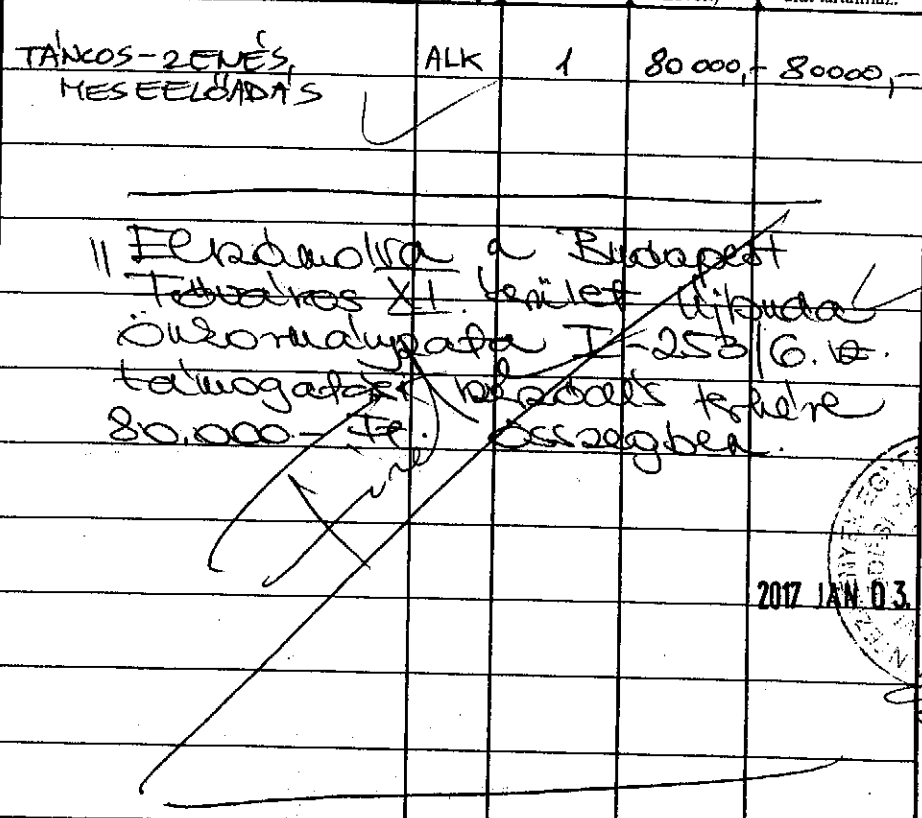 TÁNCOS-ZENÉS, ALK 1 80 000,- 80000,-
MESEELŐADÁS
"Elszámolva a Budapest
Főváros XI. kerület Újbuda
Önkormányzata I-253/6.
támogatási terhére
80.000-Ft. összegben.
2017 JAN 03.